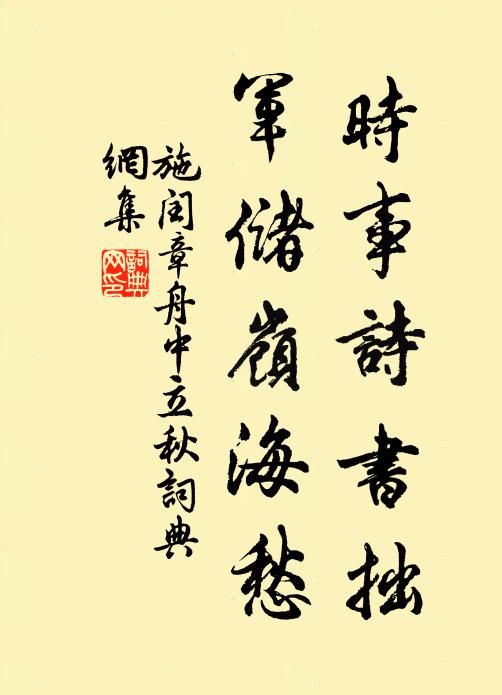 時事詩書拙
軍儲嶺海愁
施閏章舟中立秋詞典
網集
詞典
网印